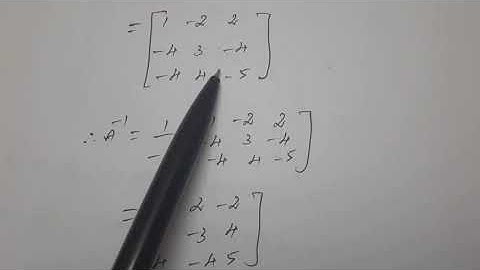 = [ 1 -2 2
-4 3 -4
-4 4 -5 ]
∴ A^-1 = 1 -2 2
- -4 3 -4
-4 4 -5 ]
= 2 -2
-3 4
4 -4 5 ]